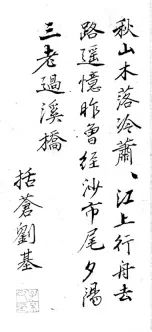 秋山木落冷蕭〻江上行舟去
路遥憶昨曾經沙市尾夕陽
三老過溪橋
括蒼劉基